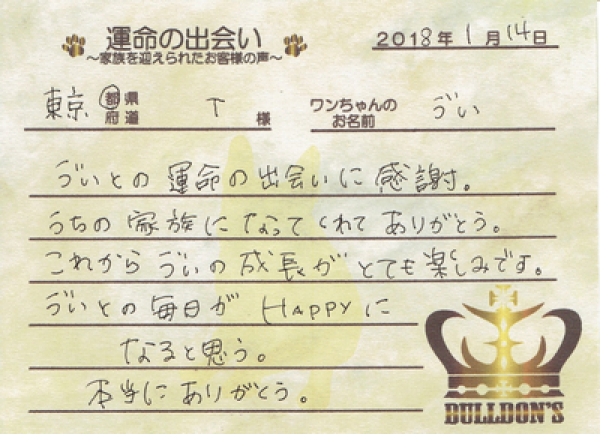 運命の出会い
～家族を迎えられたお客様の声～
2018年1月14日
東京 都県府道 T 様
ワンちゃんのお名前 ゔい
ゔいとの運命の出会いに感謝。
うちの家族になってくれてありがとう。
これからゔいの成長がとても楽しみです。
ゔいとの毎日がHAPPYに
なると思う。
本当にありがとう。
BULLDON'S